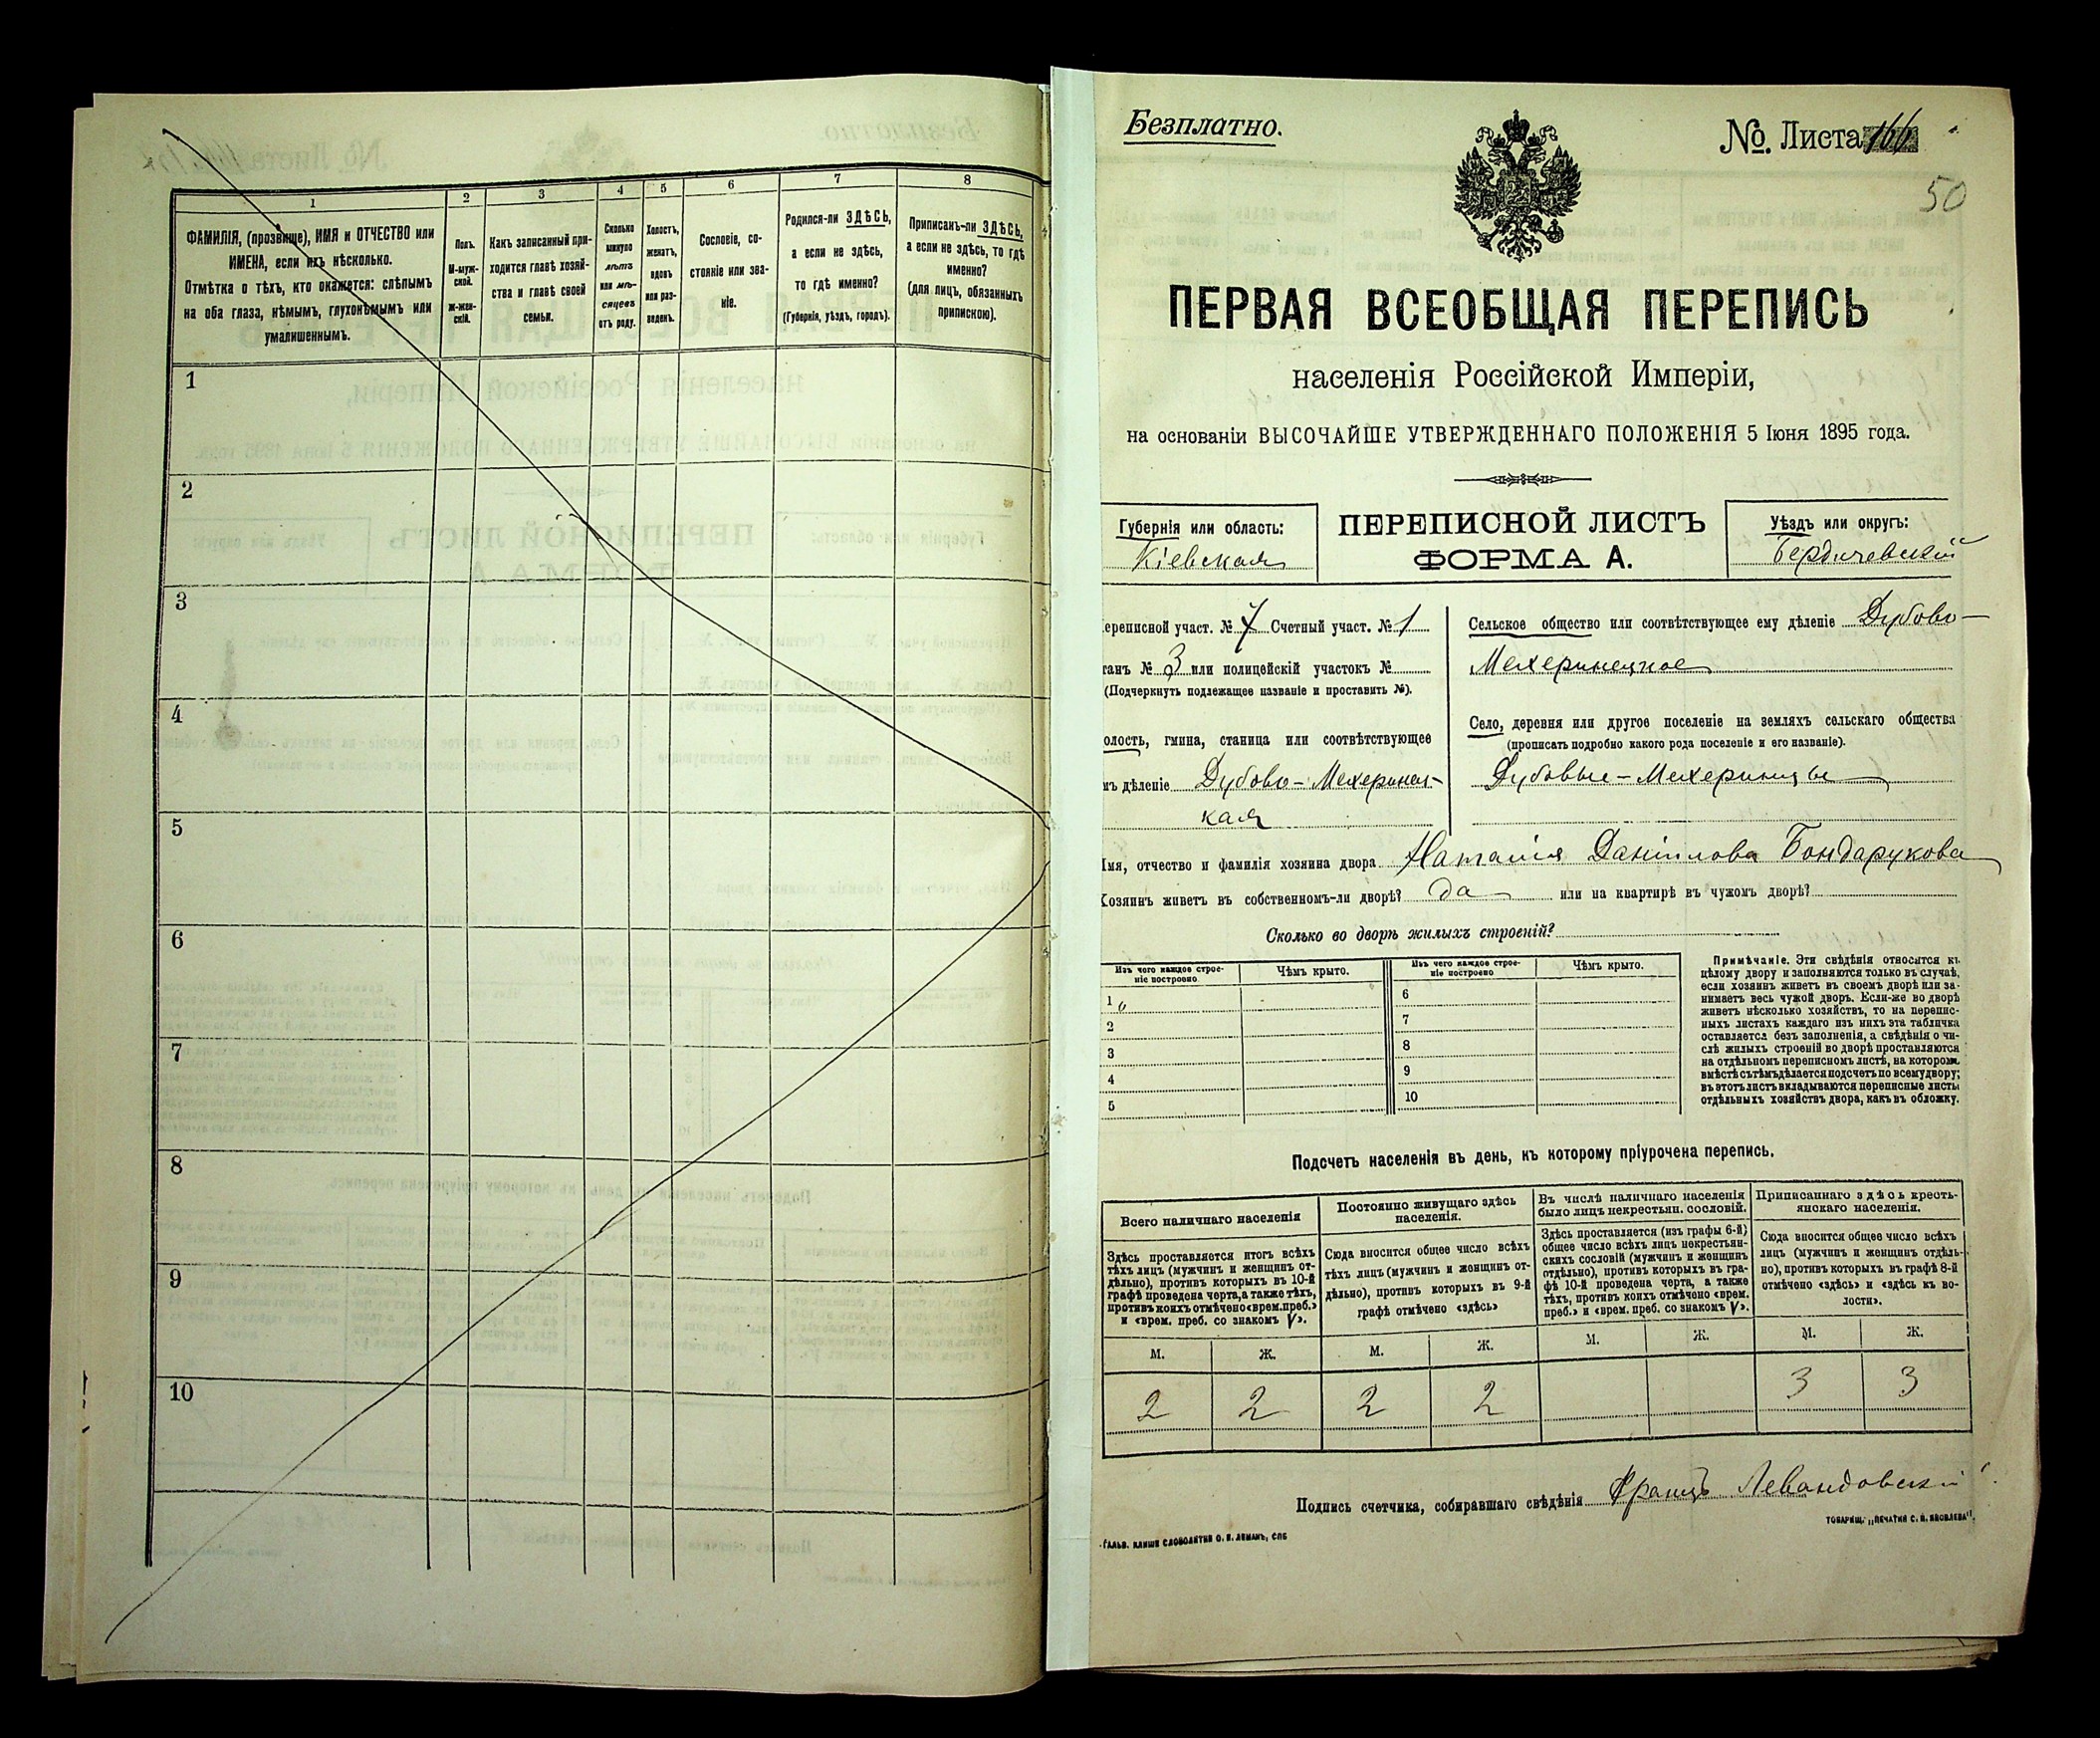 1
2
3
4
5
6
7
8
ФАМИЛІЯ, (прозвище), ИМЯ и ОТЧЕСТВО или
ИМЕНА, если ихъ нѣсколько.
Отмѣтка о тѣхъ, кто окажется: слѣпымъ
на оба глаза, нѣмымъ, глухонѣмымъ или
умалишеннымъ.
Полъ.
М-муж-
ской.
Ж-жен-
скій.
Какъ записанный при-
ходится главѣ хозяй-
ства и главѣ своей
семьи.
Сколько
минуло
лѣтъ
или мѣ-
сяцевъ
отъ роду.
Холостъ,
женатъ,
вдовъ
или раз-
веденъ.
Сословіе, со-
стояніе или зва-
ніе.
Родился-ли ЗДѢСЬ,
а если не здѣсь,
то гдѣ именно?
(Губернія, уѣздъ, городъ).
Приписанъ-ли ЗДѢСЬ,
а если не здѣсь, то гдѣ
именно?
(для лицъ, обязанныхъ
припискою).
1
2
3
4
5
6
7
8
9
10
Безплатно.
№. Листа 166
50
ПЕРВАЯ ВСЕОБЩАЯ ПЕРЕПИСЬ
населенія Россійской Имперіи,
на основаніи ВЫСОЧАЙШЕ УТВЕРЖДЕННАГО ПОЛОЖЕНІЯ 5 Іюня 1895 года.
Губернія или область:
Кіевская
ПЕРЕПИСНОЙ ЛИСТЪ
ФОРМА А.
Уѣздъ или округъ:
Бердичевскій
ереписной участ. № 7 Счетный участ. № 1
танъ № 3 или полицейскій участокъ №
(Подчеркнуть подлежащее названіе и проставить №).
олость, гмина, станица или соотвѣтствующее
мъ дѣленіе Дубово-Мехеринец-
кая
Сельское общество или соотвѣтствующее ему дѣленіе Дубово-
Мехеринецкое
Село, деревня или другое поселеніе на земляхъ сельскаго общества
(прописать подробно какого рода поселеніе и его названіе).
Дубовые-Мехеринцы
Имя, отчество и фамилія хозяина двора Наталія Даніилова Бондарукова
Хозяинъ живетъ въ собственномъ-ли дворѣ? да или на квартирѣ въ чужомъ дворѣ?
Сколько во дворѣ жилыхъ строеній?
Изъ чего каждое строе-
ніе построено
Чѣмъ крыто.
Изъ чего каждое строе-
ніе построено
Чѣмъ крыто.
1 "
2
3
4
5
6
7
8
9
10
Примѣчаніе. Эти свѣдѣнія относятся къ
цѣлому двору и заполняются только въ случаѣ,
если хозяинъ живетъ въ своемъ дворѣ или за-
нимаетъ весь чужой дворъ. Если-же во дворѣ
живетъ нѣсколько хозяйствъ, то на перепис-
ныхъ листахъ каждаго изъ нихъ эта табличка
оставляется безъ заполненія, а свѣдѣнія о чи-
слѣ жилыхъ строеній во дворѣ проставляются
на отдѣльномъ переписномъ листѣ, на которомъ
вмѣстѣ съ тѣмъ дѣлается подсчетъ по всему двору;
въ этотъ листъ вкладываются переписные листы
отдѣльныхъ хозяйствъ двора, какъ въ обложку.
Подсчетъ населенія въ день, къ которому пріурочена перепись.
Всего наличнаго населенія
Постоянно живущаго здѣсь
населенія.
Въ числѣ наличнаго населенія
было лицъ некрестьян. сословій.
Приписаннаго здѣсь кресть-
янскаго населенія.
Здѣсь проставляется итогъ всѣхъ
тѣхъ лицъ (мужчинъ и женщинъ от-
дѣльно), противъ которыхъ въ 10-й
графѣ проведена черта, а также тѣхъ,
противъ коихъ отмѣчено «врем. преб.»
и «врем. преб. со знакомъ V».
Сюда вносится общее число всѣхъ
тѣхъ лицъ (мужчинъ и женщинъ от-
дѣльно), противъ которыхъ въ 9-й
графѣ отмѣчено «здѣсь»
Здѣсь проставляется (изъ графы 6-й)
общее число всѣхъ лицъ некрестьян-
скихъ сословій (мужчинъ и женщинъ
отдѣльно), противъ которыхъ въ гра-
фѣ 10-й проведена черта, а также
тѣхъ, противъ коихъ отмѣчено «врем.
преб.» и «врем. преб. со знакомъ V».
Сюда вносится общее число всѣхъ
лицъ (мужчинъ и женщинъ отдѣль-
но), противъ которыхъ въ графѣ 8-й
отмѣчено «здѣсь» и «здѣсь къ во-
лости».
М. Ж. М. Ж. М. Ж. М. Ж.
2 2 2 2 3 3
Подпись счетчика, собиравшаго свѣдѣнія Францъ Левандовскій
ТОВАРИЩ. „ПЕЧАТНЯ С. П. ЯКОВЛЕВА".
ГАЛЬВ. КЛИШЕ СЛОВОЛИТНИ О. И. ЛЕМАНЪ, СПБ